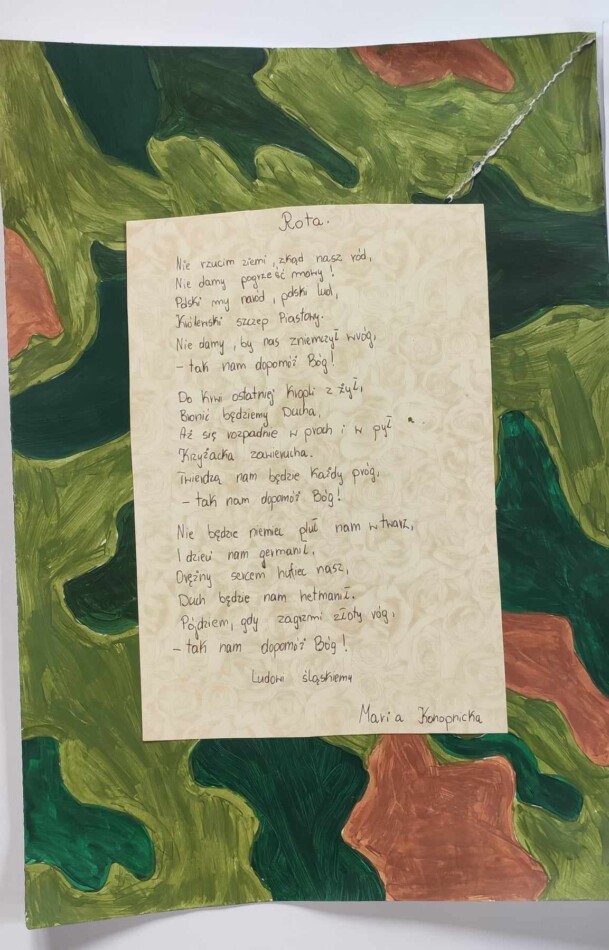 Rota.
Nie rzucim ziemi, zkąd nasz ród,
Nie damy pogrześć mowy!
Polski my naród, polski lud,
Królewski szczep Piastowy.
Nie damy, by nas zniemczył wróg,
- tak nam dopomóż Bóg!
Do krwi ostatniej kropli z żył,
Bronić będziemy Ducha,
Aż się rozpadnie w proch i w pył
Krzyżacka zawierucha.
Twierdzą nam będzie każdy próg,
- tak nam dopomóż Bóg!
Nie będzie niemiec pluł nam w twarz,
I dzieci nam germanił,
Orężny sercem hufiec nasz,
Duch będzie nam hetmanił.
Pójdziem, gdy zagrzmi złoty róg,
- tak nam dopomóż Bóg!
Ludowi śląskiemu
Maria Konopnicka